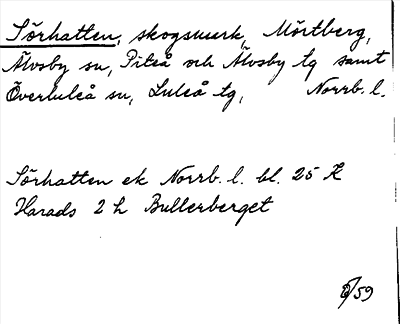 Sörhatten, skogsmark, Mörtberg,
Älvsby sn, Piteå och Älvsby tg samt
Överluleå sn, Luleå tg, Norrb. l.
Sörhatten ek Norrb. l. bl. 25 K
Harads 2 h Bullerberget
/59